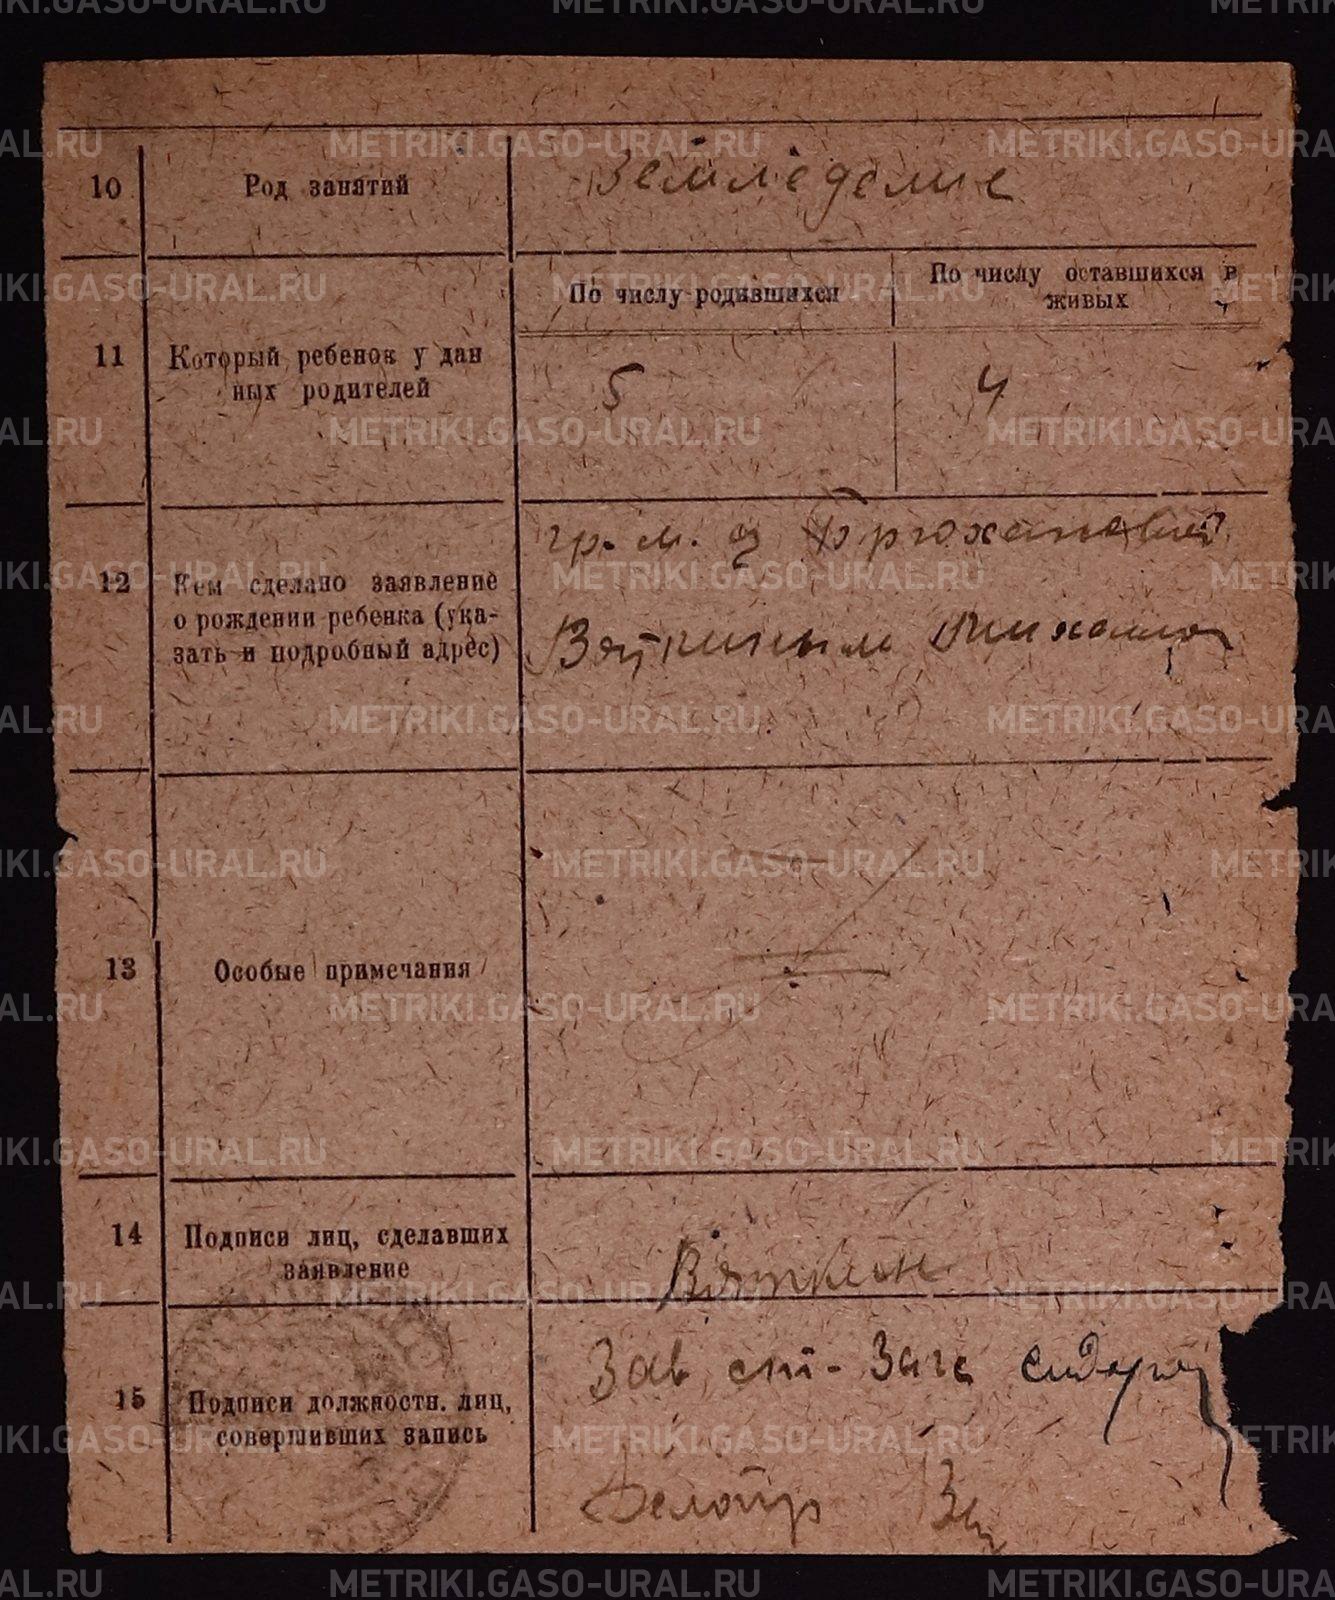 10 Род занятий Земледелие
По числу родившихся
По числу оставшихся в
живых
11 Который ребенок у дан
ных родителей
5 4
гр. м. д
12 Кем сделано заявление
о рождении ребенка (ука-
зать и подробный адрес)
Вяткиным Михаилом
13 Особые примечания
14 Подписи лиц, сделавших
заявление
Вяткин
15 Подписи должностн. лиц,
совершивших запись
Зав ст. Загс Сидоро
Делопр
METRIKI.GASO-URAL.RU